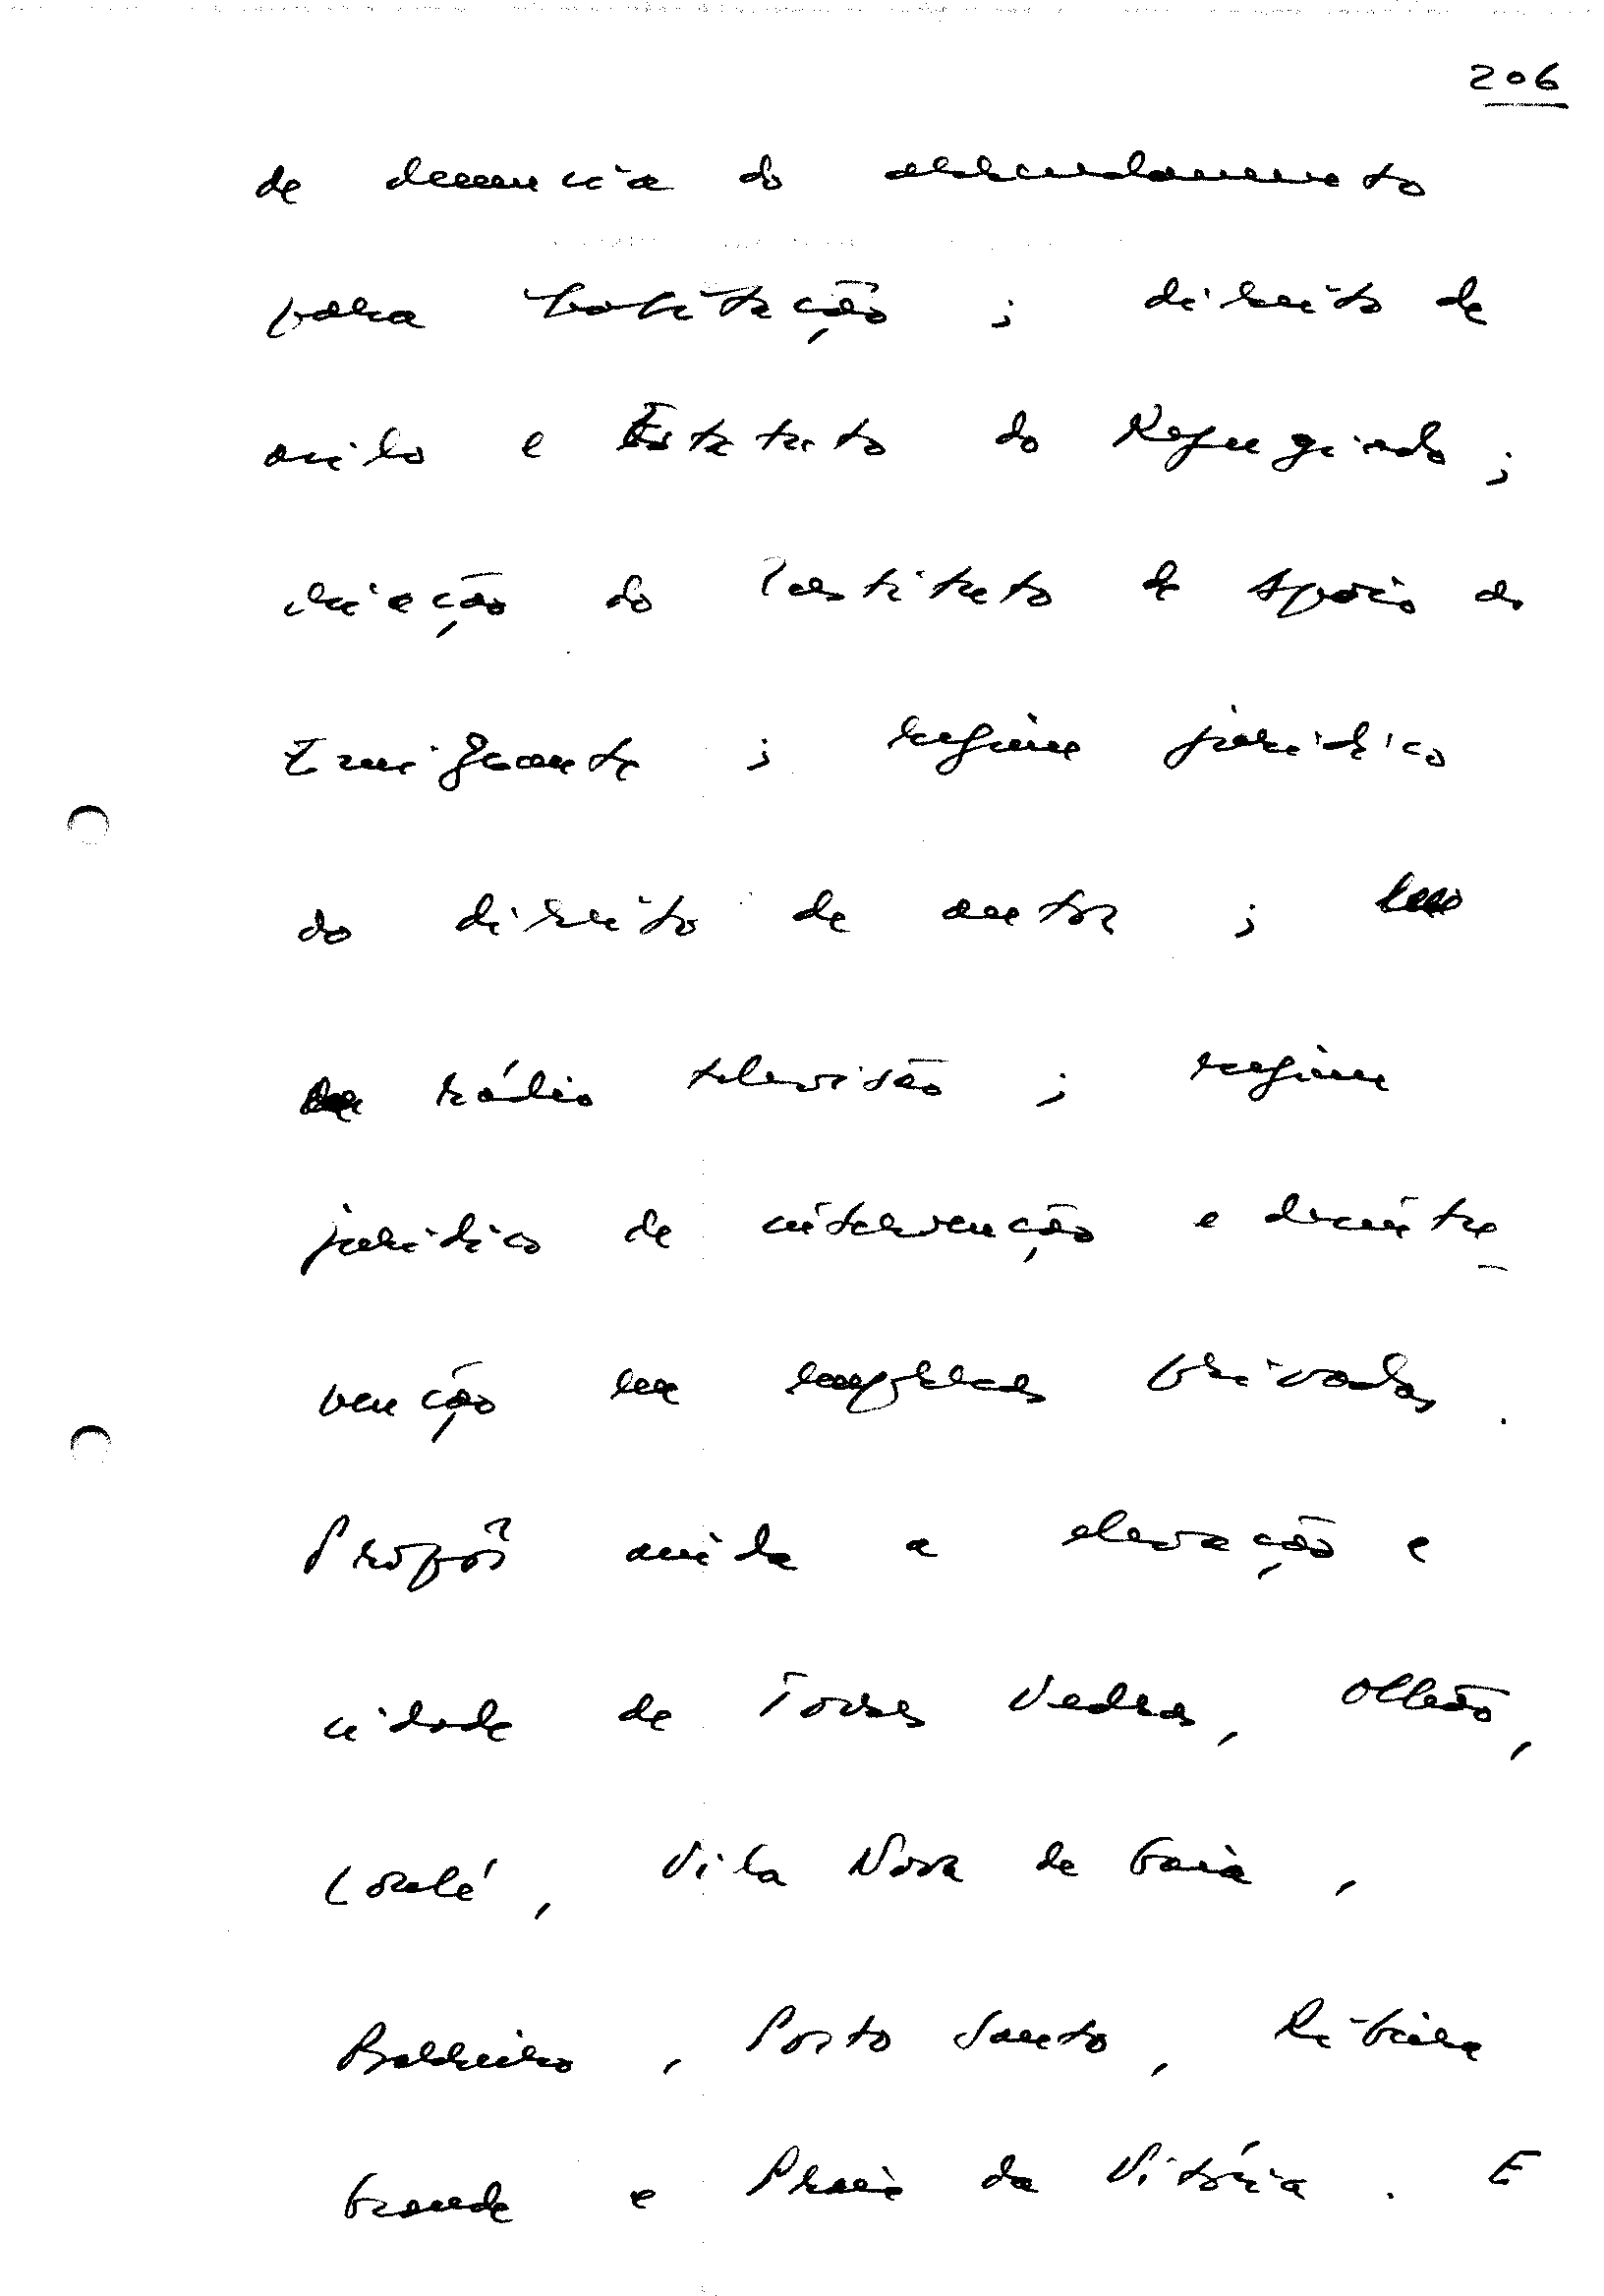 206
de denúncia do arrendamento
para habitação ; direito de
asilo e Estatuto do Refugiado ;
criação do Instituto de Apoio ao
Emigrante ; regime jurídico
do direito de autor ;
rádio televisão ; regime
jurídico de intervenção e desinter-
venção em empresas privadas .
Propôs ainda a elevação a
cidade de Torres Vedras, Olhão,
Loulé, Vila Nova de Gaia,
Barreiro, Porto Santo, Ribeira
Grande e Praia da Vitória . E